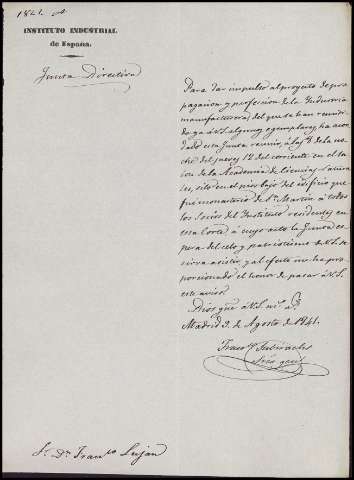 1841
INSTITUTO INDUSTRIAL
de España.
Junta Directiva
Para dar impulso al proyecto de pro
pagacion y proteccion de la Industria
manufacturera, del que se han remiti
do ya á V.S. algunos ejemplares, ha acor
dado esta Junta reunir, á las 8 de la no
che del jueves 12 del corriente en el sa
lon de la Academia de Ciencias Natura
les, sito en el piso bajo del edificio que
fué monasterio de Sn. Martin á todos
los Socios del Instituto residentes en
esta Corte á cuyo acto la Junta es
pera del celo y patriotismo de V.S. se
sirva asistir, y al efecto me ha pro
porcionado el honor de pasar á V.S.
este aviso.
Dios gue. á V.S. ms. as.
Madrid 9. de Agosto de 1841.
Sr. Dn. Franco. Lujan